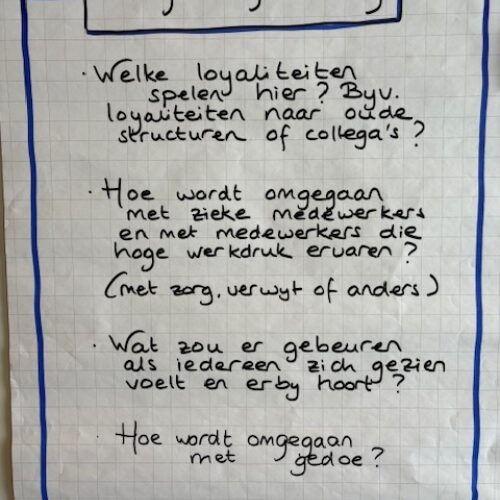 · Welke loyaliteiten
spelen hier? Byv.
loyaliteiten naar oude
structuren of collega's?
· Hoe wordt omgegaan
met zieke medewerkers
en met medewerkers die
hoge werkdruk ervaren?
(met zorg, verwyt of anders)
· Wat zou er gebeuren
als iedereen zich gezien
voelt en erby hoort?
· Hoe wordt omgegaan
met gedoe?